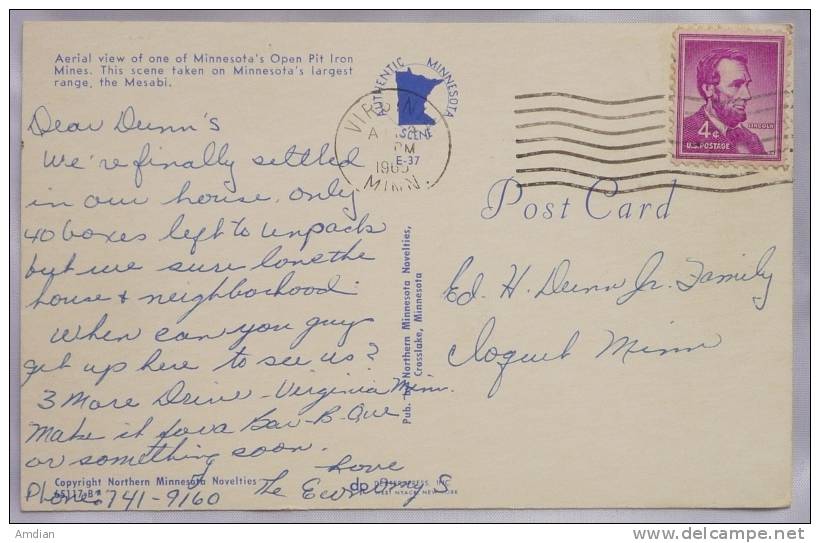 Aerial view of one of Minnesota's Open Pit Iron
Mines. This scene taken on Minnesota's largest
range, the Mesabi.
Dear Dunn's
We're finally settled
in our house. only
40 boxes left to unpack
but we sure love the
house & neighborhood.
When can you guys
get up here to see us?
3 More Drive - Virginia Minn.
Make it for a Bar-B-Que
or something soon.
Love
The
Phone 741-9160
Copyright Northern Minnesota Novelties
AUTHENTIC MINNESOTA
SCENE
E-37
PM
MINN.
4¢
LINCOLN
U.S. POSTAGE
Post Card
Pub. by Northern Minnesota Novelties,
Crosslake, Minnesota
Ed. H. Dunn Jr. Family
Cloquet Minn
dp
WEST NYACK, NEW YORK
Amdian
delcampe.net